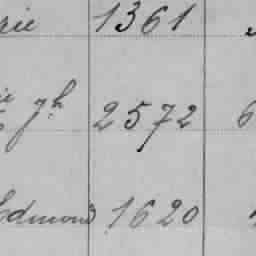 rie 1361
2572 6
Edmond 1620